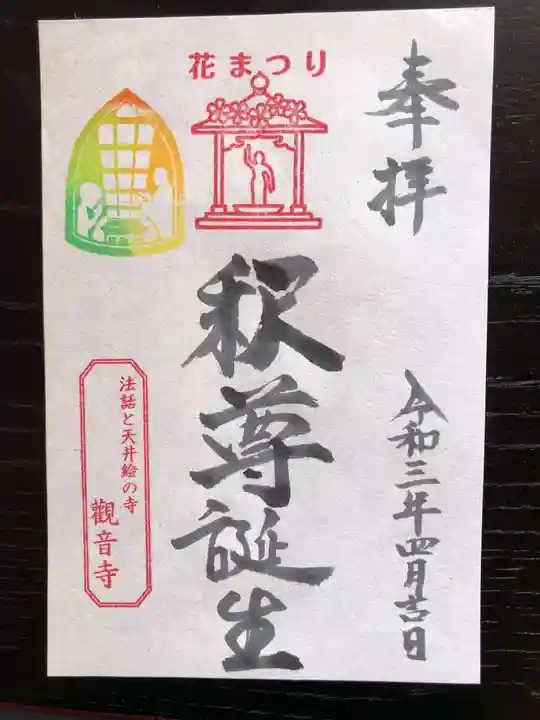 奉拝
令和三年四月吉日
花まつり
釈尊誕生
法話と天井絵の寺
觀音寺